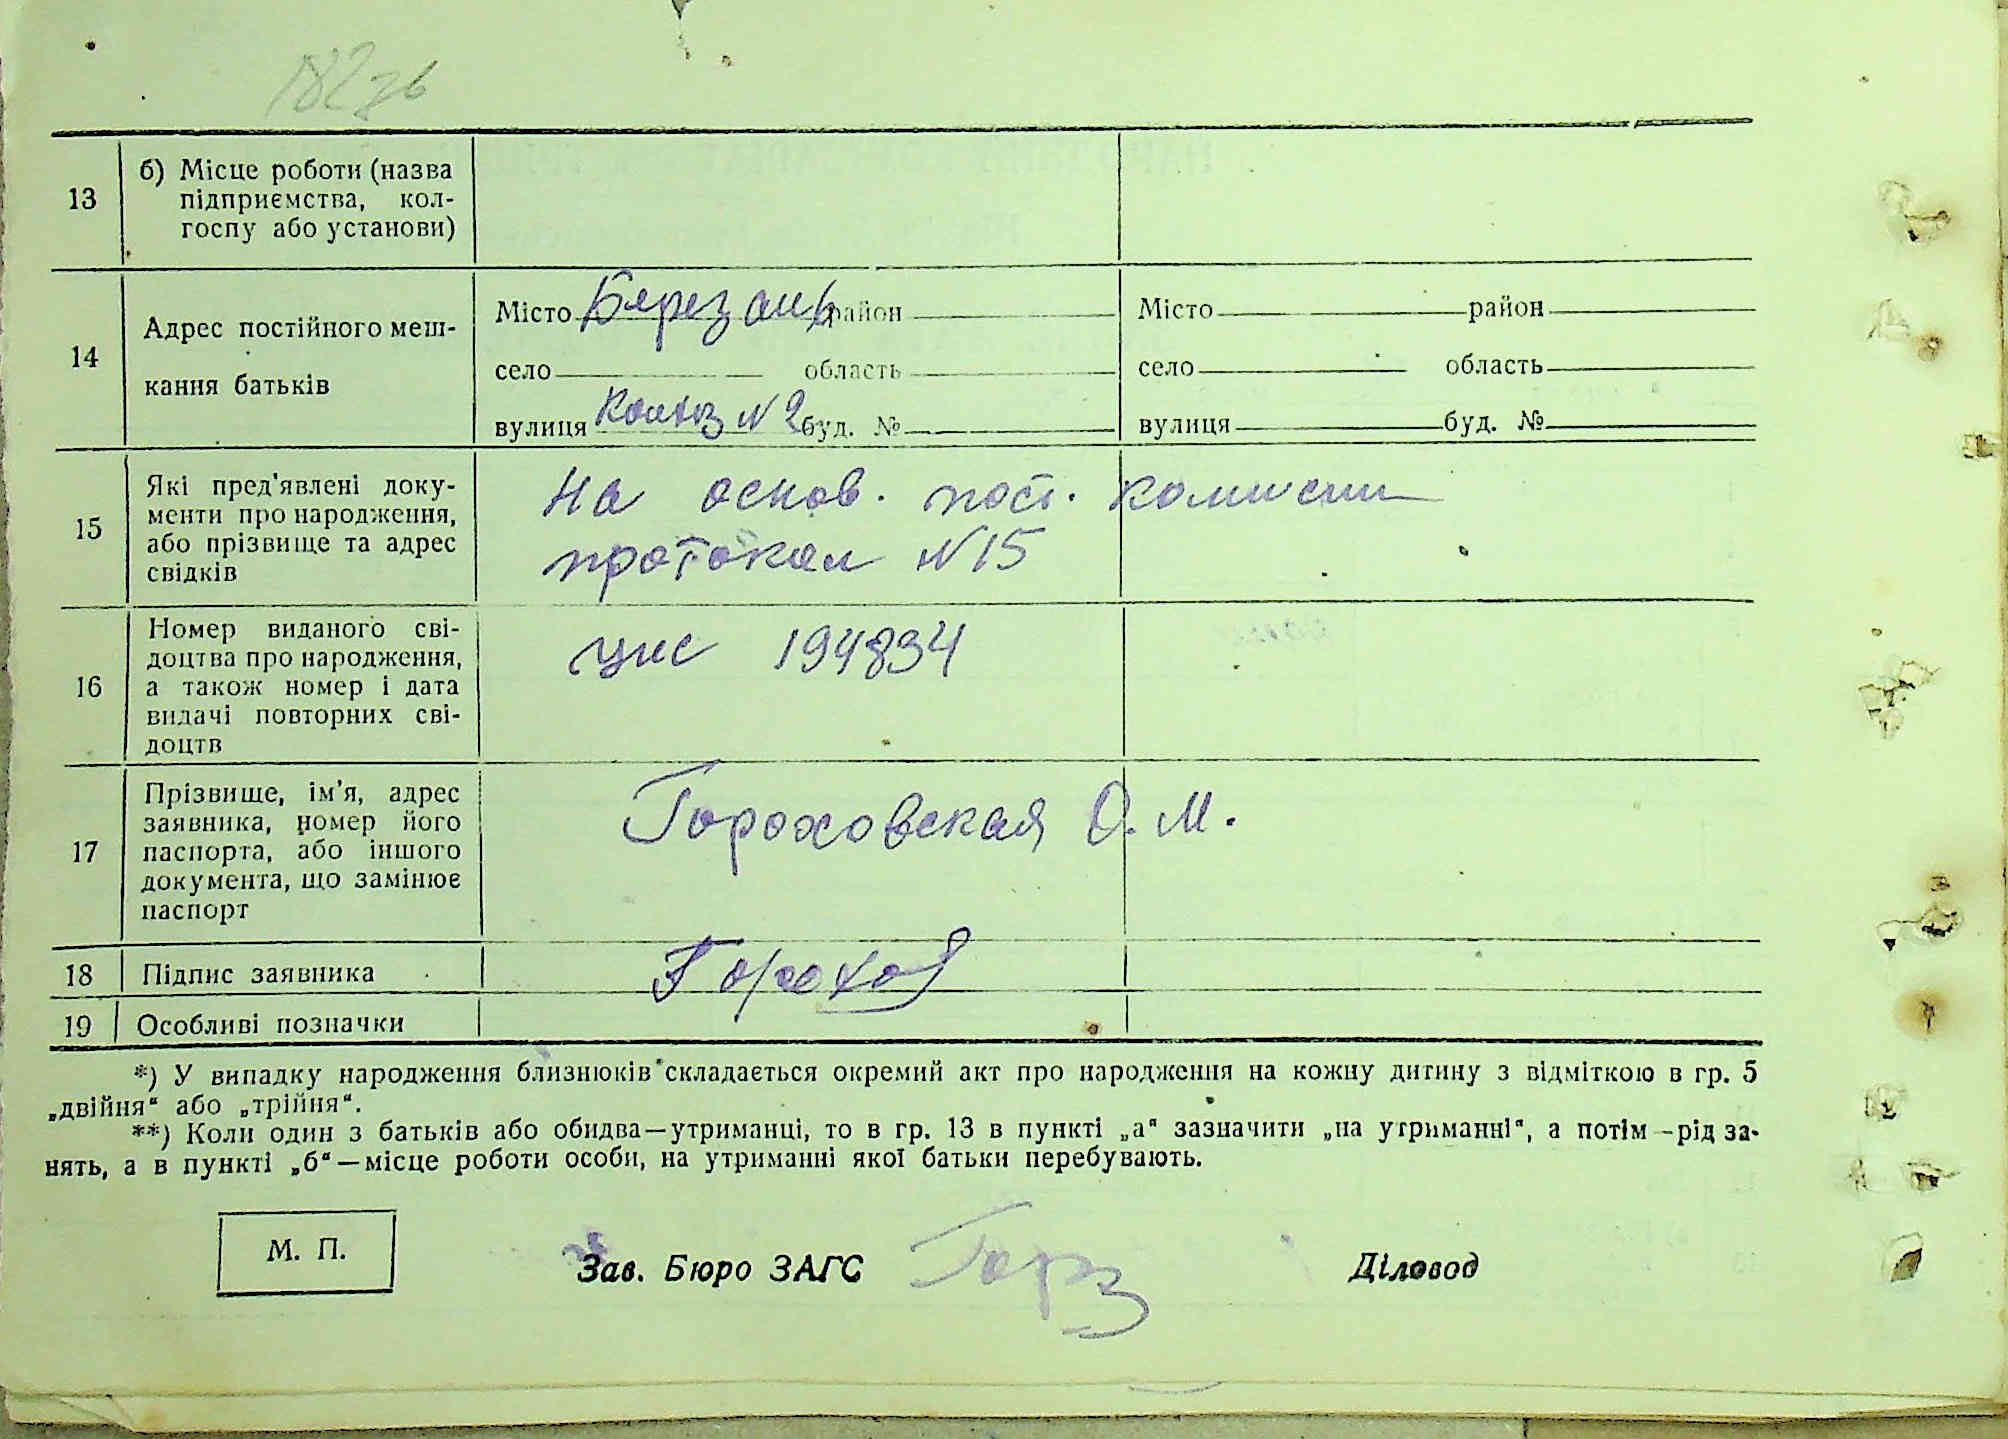 182 зв
13
б) Місце роботи (назва
підприємства, кол-
госпу або установи)
14
Адрес постійного меш-
кання батьків
Місто Березань район
село область
вулиця Колхоз N 2 буд. №
Місто район
село область
вулиця буд. №
15
Які пред'явлені доку-
менти про народження,
або прізвище та адрес
свідків
На основ. пост. комисии
протокол N 15
16
Номер виданого сві-
доцтва про народження,
а також номер і дата
видачі повторних сві-
доцтв
194834
17
Прізвище, ім'я, адрес
заявника, номер його
паспорта, або іншого
документа, що замінює
паспорт
Гороховская О. М.
18
Підпис заявника
Горохов
19
Особливі позначки
*) У випадку народження близнюків складається окремий акт про народження на кожну дитину з відміткою в гр. 5
„двійня“ або „трійня“.
**) Коли один з батьків або обидва—утриманці, то в гр. 13 в пункті „а“ зазначити „на утриманні“, а потім—рід за-
нять, а в пункті „б“—місце роботи особи, на утриманні якої батьки перебувають.
М. П.
Зав. Бюро ЗАГС
Діловод